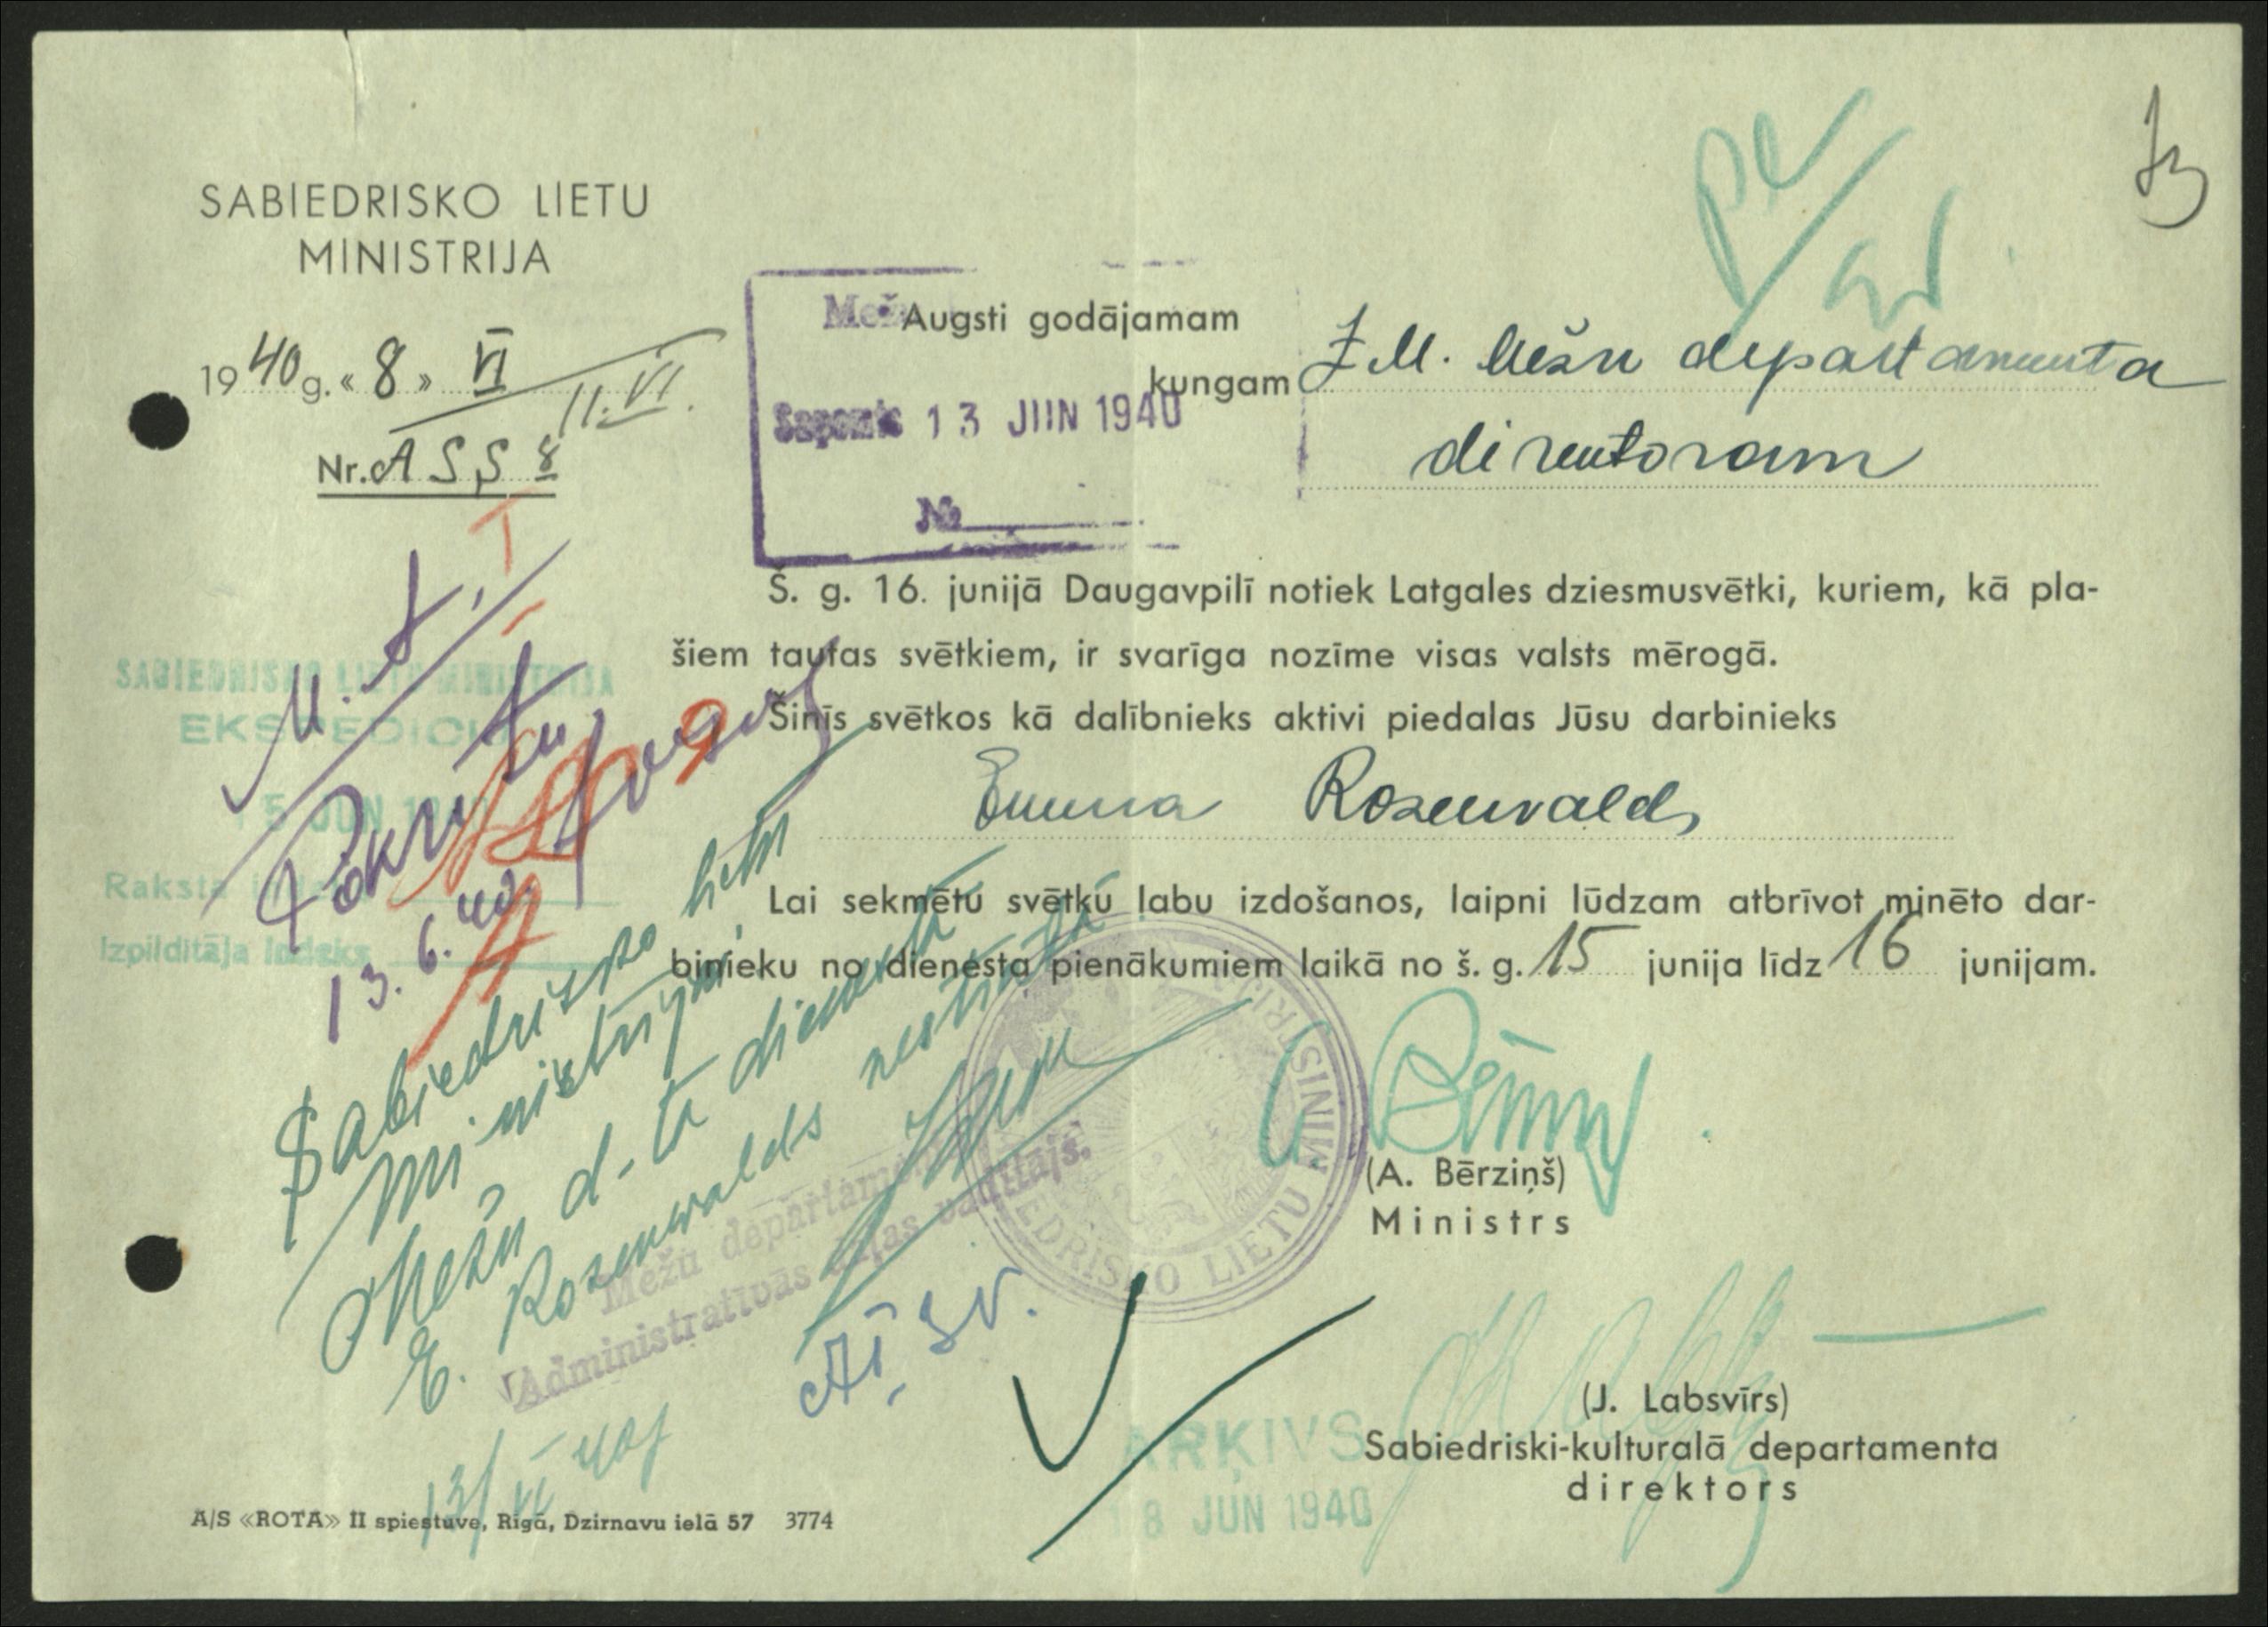 SABIEDRISKO LIETU
MINISTRIJA
1940 g. « 8 » VI
11. VI.
Nr. A 5 5 8
Augsti godājamam
kungam Z. M. Mežu departamenta
direktoram
Saņemts 13 JUN 1940
№
Š. g. 16. junijā Daugavpilī notiek Latgales dziesmusvētki, kuriem, kā pla-
šiem tautas svētkiem, ir svarīga nozīme visas valsts mērogā.
Šinīs svētkos kā dalībnieks aktivi piedalas Jūsu darbinieks
Emma Rosenvalds
Lai sekmētu svētku labu izdošanos, laipni lūdzam atbrīvot minēto dar-
binieku no dienesta pienākumiem laikā no š. g. 15 junija līdz 16 junijam.
(A. Bērziņš)
Ministrs
(J. Labsvīrs)
Sabiedriski-kulturalā departamenta
direktors
SABIEDRISKO LIETU MINISTRIJA
EKSPEDICIJA
JUN
Raksta
Izpildītāja Indeks
13. 6. 40.
Sabiedrisko lietu
Ministrijai.
Mežu d-ta dienestā
E. Rosenwalds nestrādā
Mežu departamenta
Administratīvās daļas vadītājs.
13/VI 40
EDRISKO LIETU MINISTRI
ARĶIVS
18 JUN 1940
A/S «ROTA» II spiestuve, Rīgā, Dzirnavu ielā 57 3774